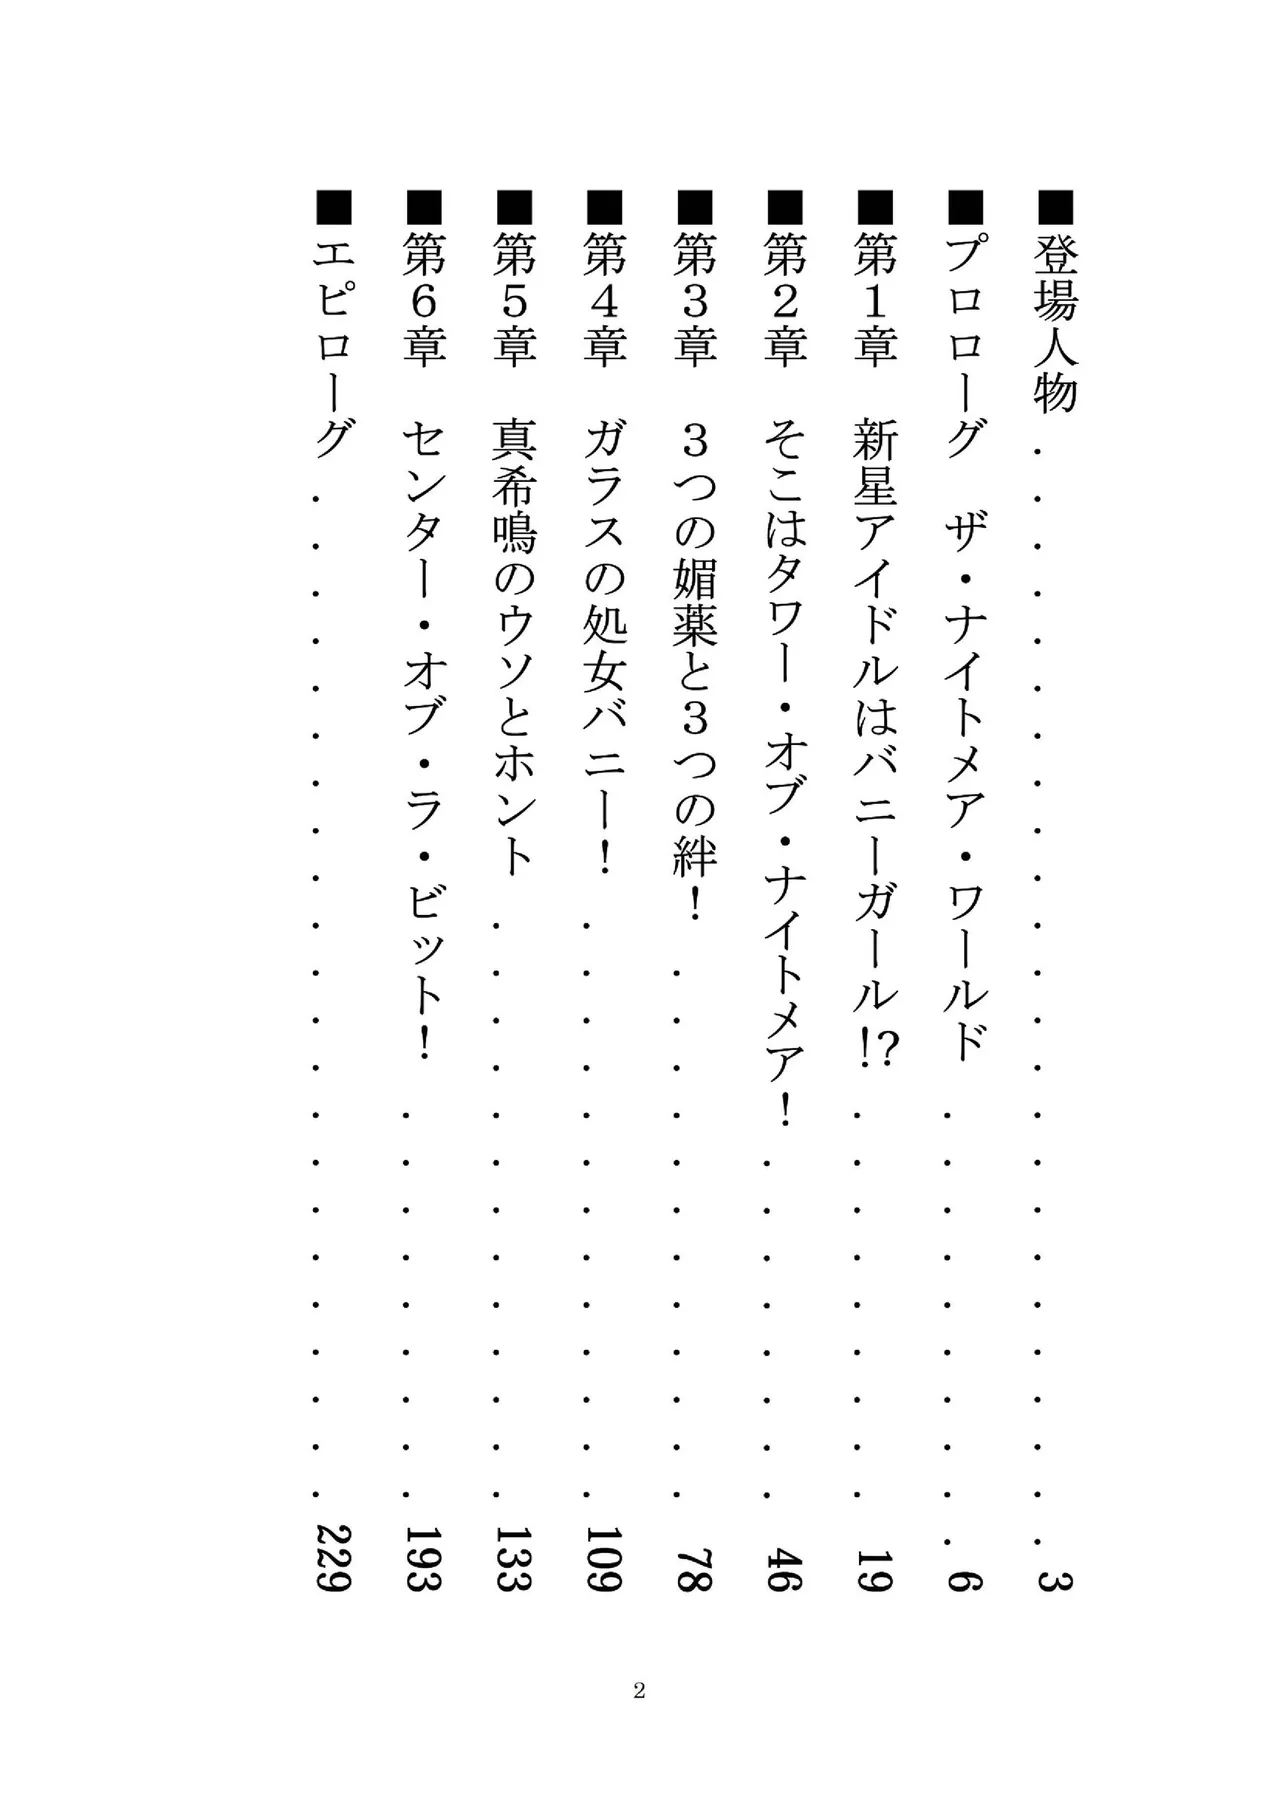 ■登場人物．．．．．．．．．．．．．．．．．．．．．．．．3
■プロローグ　ザ・ナイトメア・ワールド．．．．．．．．．．6
■第１章　新星アイドルはバニーガール!?．．．．．．．．．19
■第２章　そこはタワー・オブ・ナイトメア！．．．．．．．．46
■第３章　３つの媚薬と３つの絆！．．．．．．．．．．．．78
■第４章　ガラスの処女バニー！．．．．．．．．．．．．．109
■第５章　真希鳴のウソとホント．．．．．．．．．．．．．133
■第６章　センター・オブ・ラ・ビット！．．．．．．．．．193
■エピローグ．．．．．．．．．．．．．．．．．．．．．．229
2